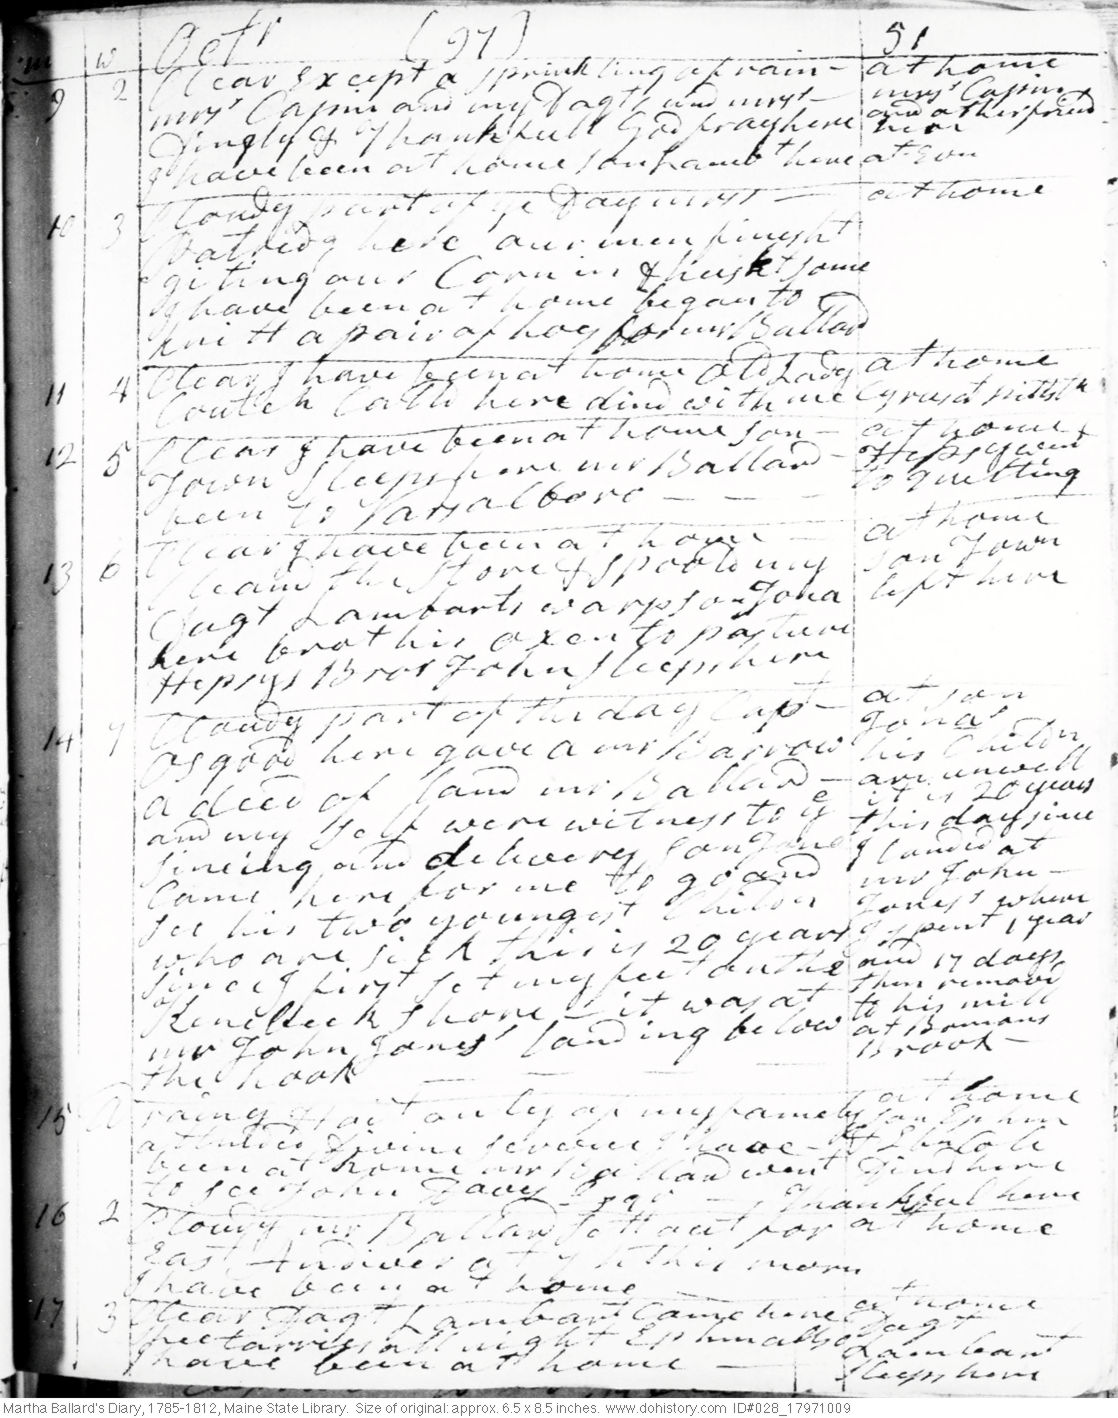 m w Octr (97) 51
9 2 Clear Except a sprinkling of rain – at home
mrs Capin and my Dagts and mrs – mrs Capin
Dingly & Thankfull Godfray here and other friend
I have been at home son Lambt here at Evn
10 3 Cloudy part of ye Day mrs – at home
Patridg here our men finisht
giting our Corn in & huskt some
I have been at home began to
knitt a pair of hoes for mr Ballard
11 4 Clear I have been at home Old Lady at home
Coutch Calld here dind with me Cyrus at
12 5 Clear I have been at home son – at home
Town Sleeps here mr Ballard – Hepsy went
been to Varsalboro – – – to quillting
13 6 Clear I have been at home – at home
Cleand the Store & spoold my son Town
Dagt Lambarts warp son Jona left here
here brot his oxen to pasture
Hepsys Bror John sleeps here
14 7 Cloudy part of the day Capt – at son
Osgood here gave a mr Barrow Jonas
a deed of land mr Ballard – his Childn
and my self were witness to ye are unwell
sineing and delivery son Jona it is 20 years
Came here for me to go and this day since
see his two youngest Childn I landed at
who are sick this is 20 years mr John –
since I first set my feet on the Jones' where
Kenebeck shore – it was at I spent 1 year
mr John Jones' landing below and 17 days
the hook – – – then removd
to his mill
at Bomans
Brook –
15 A rainy & I only of my famely at home
attended Divine servise I have – son Ephm
been at home mr Ballard went & Eben Cob
to see John Davis Esqr – Dind here
Thankfull here
16 2 Cloudy mr Ballard sett out for at home
East Andiver at 7 h this morn
I have been at home –
17 3 Clear Dagt Lambart Came here at home
shee tarries all night Ephm allso Dagt
I have been at home – Lambart
sleeps here
Martha Ballard's Diary, 1785-1812, Maine State Library. Size of original: approx. 6.5 x 8.5 inches. www.dohistory.com ID#028_17971009